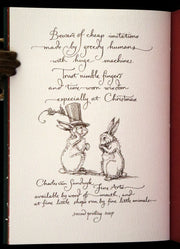 Beware of cheap imitations
made by greedy humans
with huge machines
Trust nimble fingers
and time-won wisdom
especially at Christmas
Charles van Sandwyk Fine Arts
available by word of mouth, and
at fine little shops run by fine little animals.
second printing